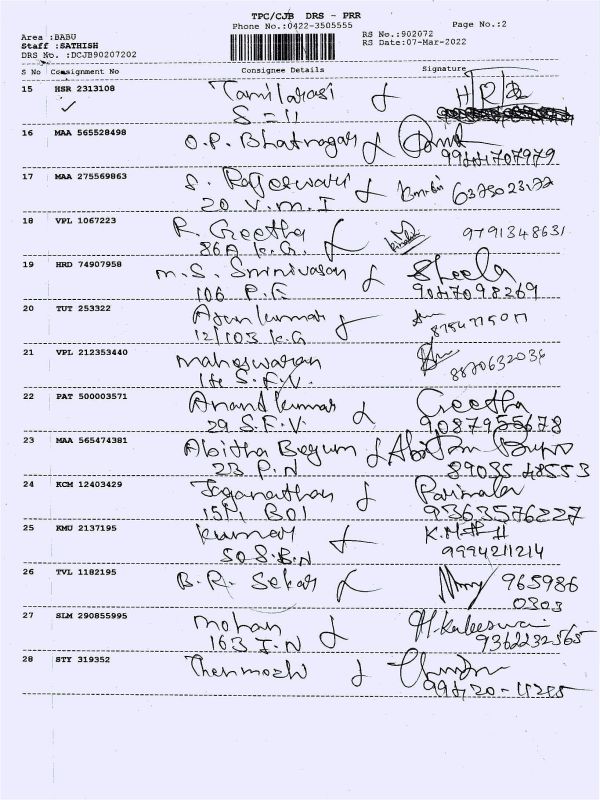 TPC/CJB DRS - PRR
Phone No.:0422-3505555 Page No.:2
Area :BABU RS No.:902072
Staff :SATHISH RS Date:07-Mar-2022
DRS No. :DCJB90207202
S No Consignment No Consignee Details Signature
15 HSR 2313108 Tamilarasi
S - 11
16 MAA 565528498 O.P. Bhatnagar
17 MAA 275569863 S. Rajeswari
20 V.M.I
18 VPL 1067223 R. Geetha 9791348631
86A K.G.
19 HRD 74907958 M.S. Srinivasan Sheela
106 P.E 9047098269
20 TUT 253322 Arun kumar
12/103 K.G
21 VPL 212353440 Maheswaran 8870632036
S.F.V.
22 PAT 500003571 Anand kumar Geetha
29 S.F.V. 9087955678
23 MAA 565474381 Abitha Begum
23 P.N 89035 48553
24 KCM 12403429 Jaganathan Parimala
9363576227
25 KMU 2137195 kumar
50 S.B.N 9994211214
26 TVL 1182195 B.R. Sekar 965986
0303
27 SLM 290855995 Mohan
163 I.N 9362232565
28 STY 319352 Thenmozhi